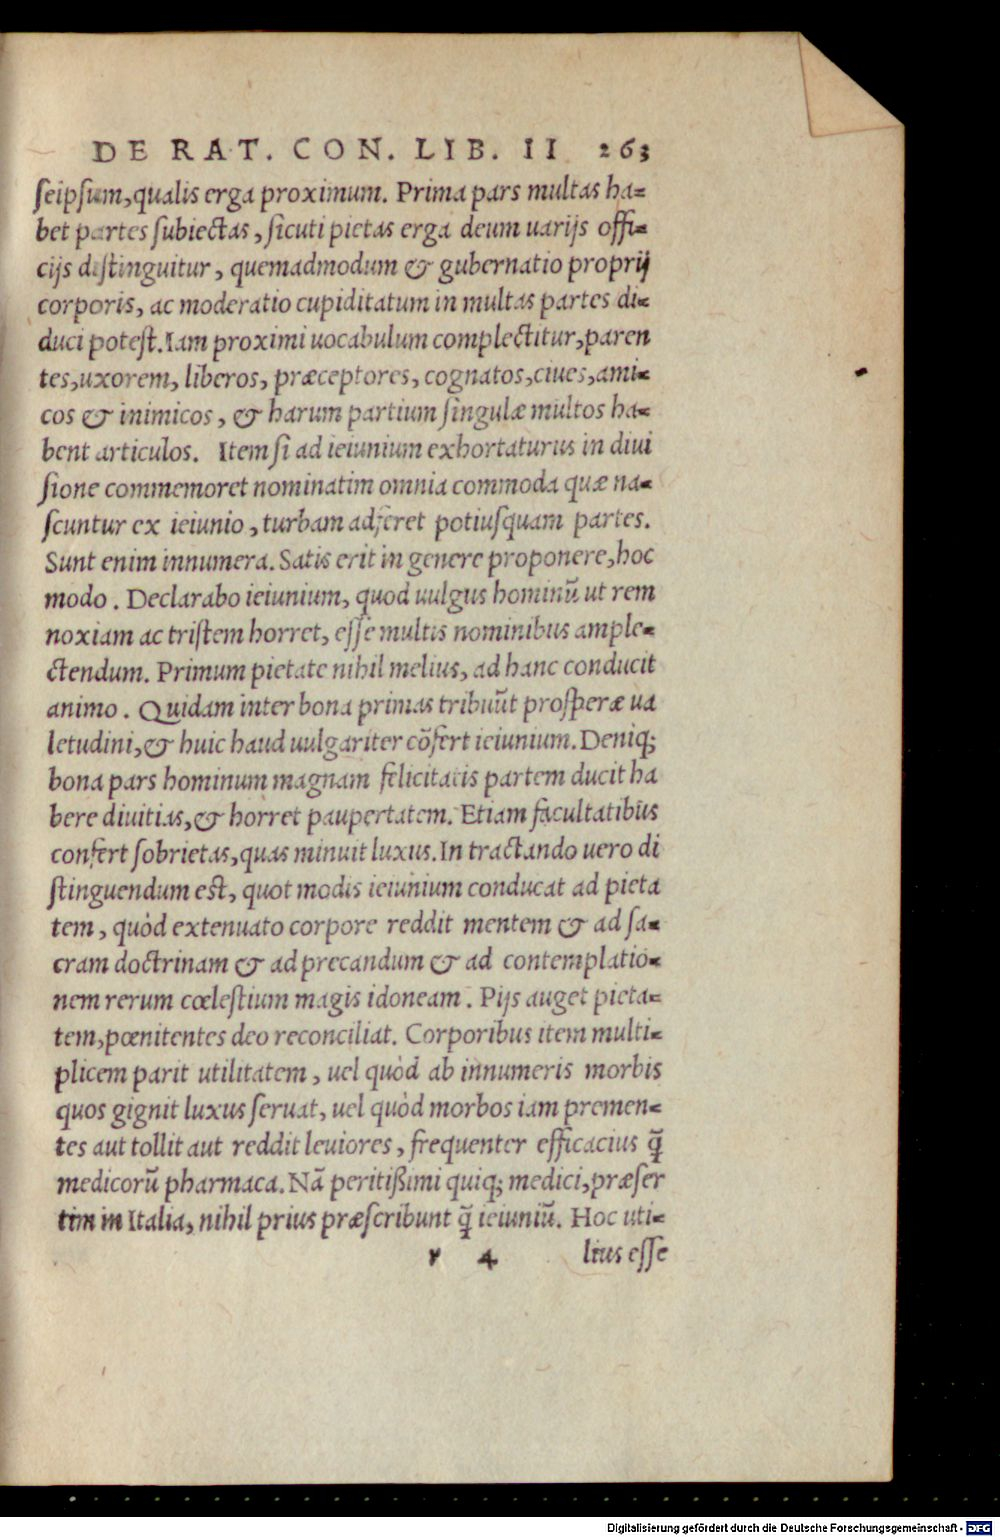 DE RAT. CON. LIB. II 263
seipsum, qualis erga proximum. Prima pars multas ha=
bet partes subiectas, sicuti pietas erga deum uarijs offi=
cijs distinguitur, quemadmodum & gubernatio proprij
corporis, ac moderatio cupiditatum in multas partes di=
duci potest. Iam proximi uocabulum complectitur, paren
tes, uxorem, liberos, præceptores, cognatos, ciues, ami=
cos & inimicos, & harum partium singulæ multos ha=
bent articulos. Item si ad ieiunium exhortaturus in diui
sione commemoret nominatim omnia commoda quæ na=
scuntur ex ieiunio, turbam adferet potiusquam partes.
Sunt enim innumera. Satis erit in genere proponere, hoc
modo. Declarabo ieiunium, quod uulgus hominū ut rem
noxiam ac tristem horret, esse multis nominibus ample=
ctendum. Primum pietate nihil melius, ad hanc conducit
animo. Quidam inter bona primas tribuūt prosperæ ua
letudini, & huic haud uulgariter cōfert ieiunium. Deniq;
bona pars hominum magnam felicitatis partem ducit ha
bere diuitias, & horret paupertatem. Etiam facultatibus
confert sobrietas, quas minuit luxus. In tractando uero di
stinguendum est, quot modis ieiunium conducat ad pieta
tem, quòd extenuato corpore reddit mentem & ad sa=
cram doctrinam & ad precandum & ad contemplatio=
nem rerum cœlestium magis idoneam. Pijs auget pieta=
tem, pœnitentes deo reconciliat. Corporibus item multi=
plicem parit utilitatem, uel quòd ab innumeris morbis
quos gignit luxus seruat, uel quòd morbos iam premen=
tes aut tollit aut reddit leuiores, frequenter efficacius q̄
medicorū pharmaca. Nā peritißimi quiq; medici, præser
tim in Italia, nihil prius præscribunt q̄ ieiuniū. Hoc uti=
y 4 lius esse
Digitalisierung gefördert durch die Deutsche Forschungsgemeinschaft - DFG